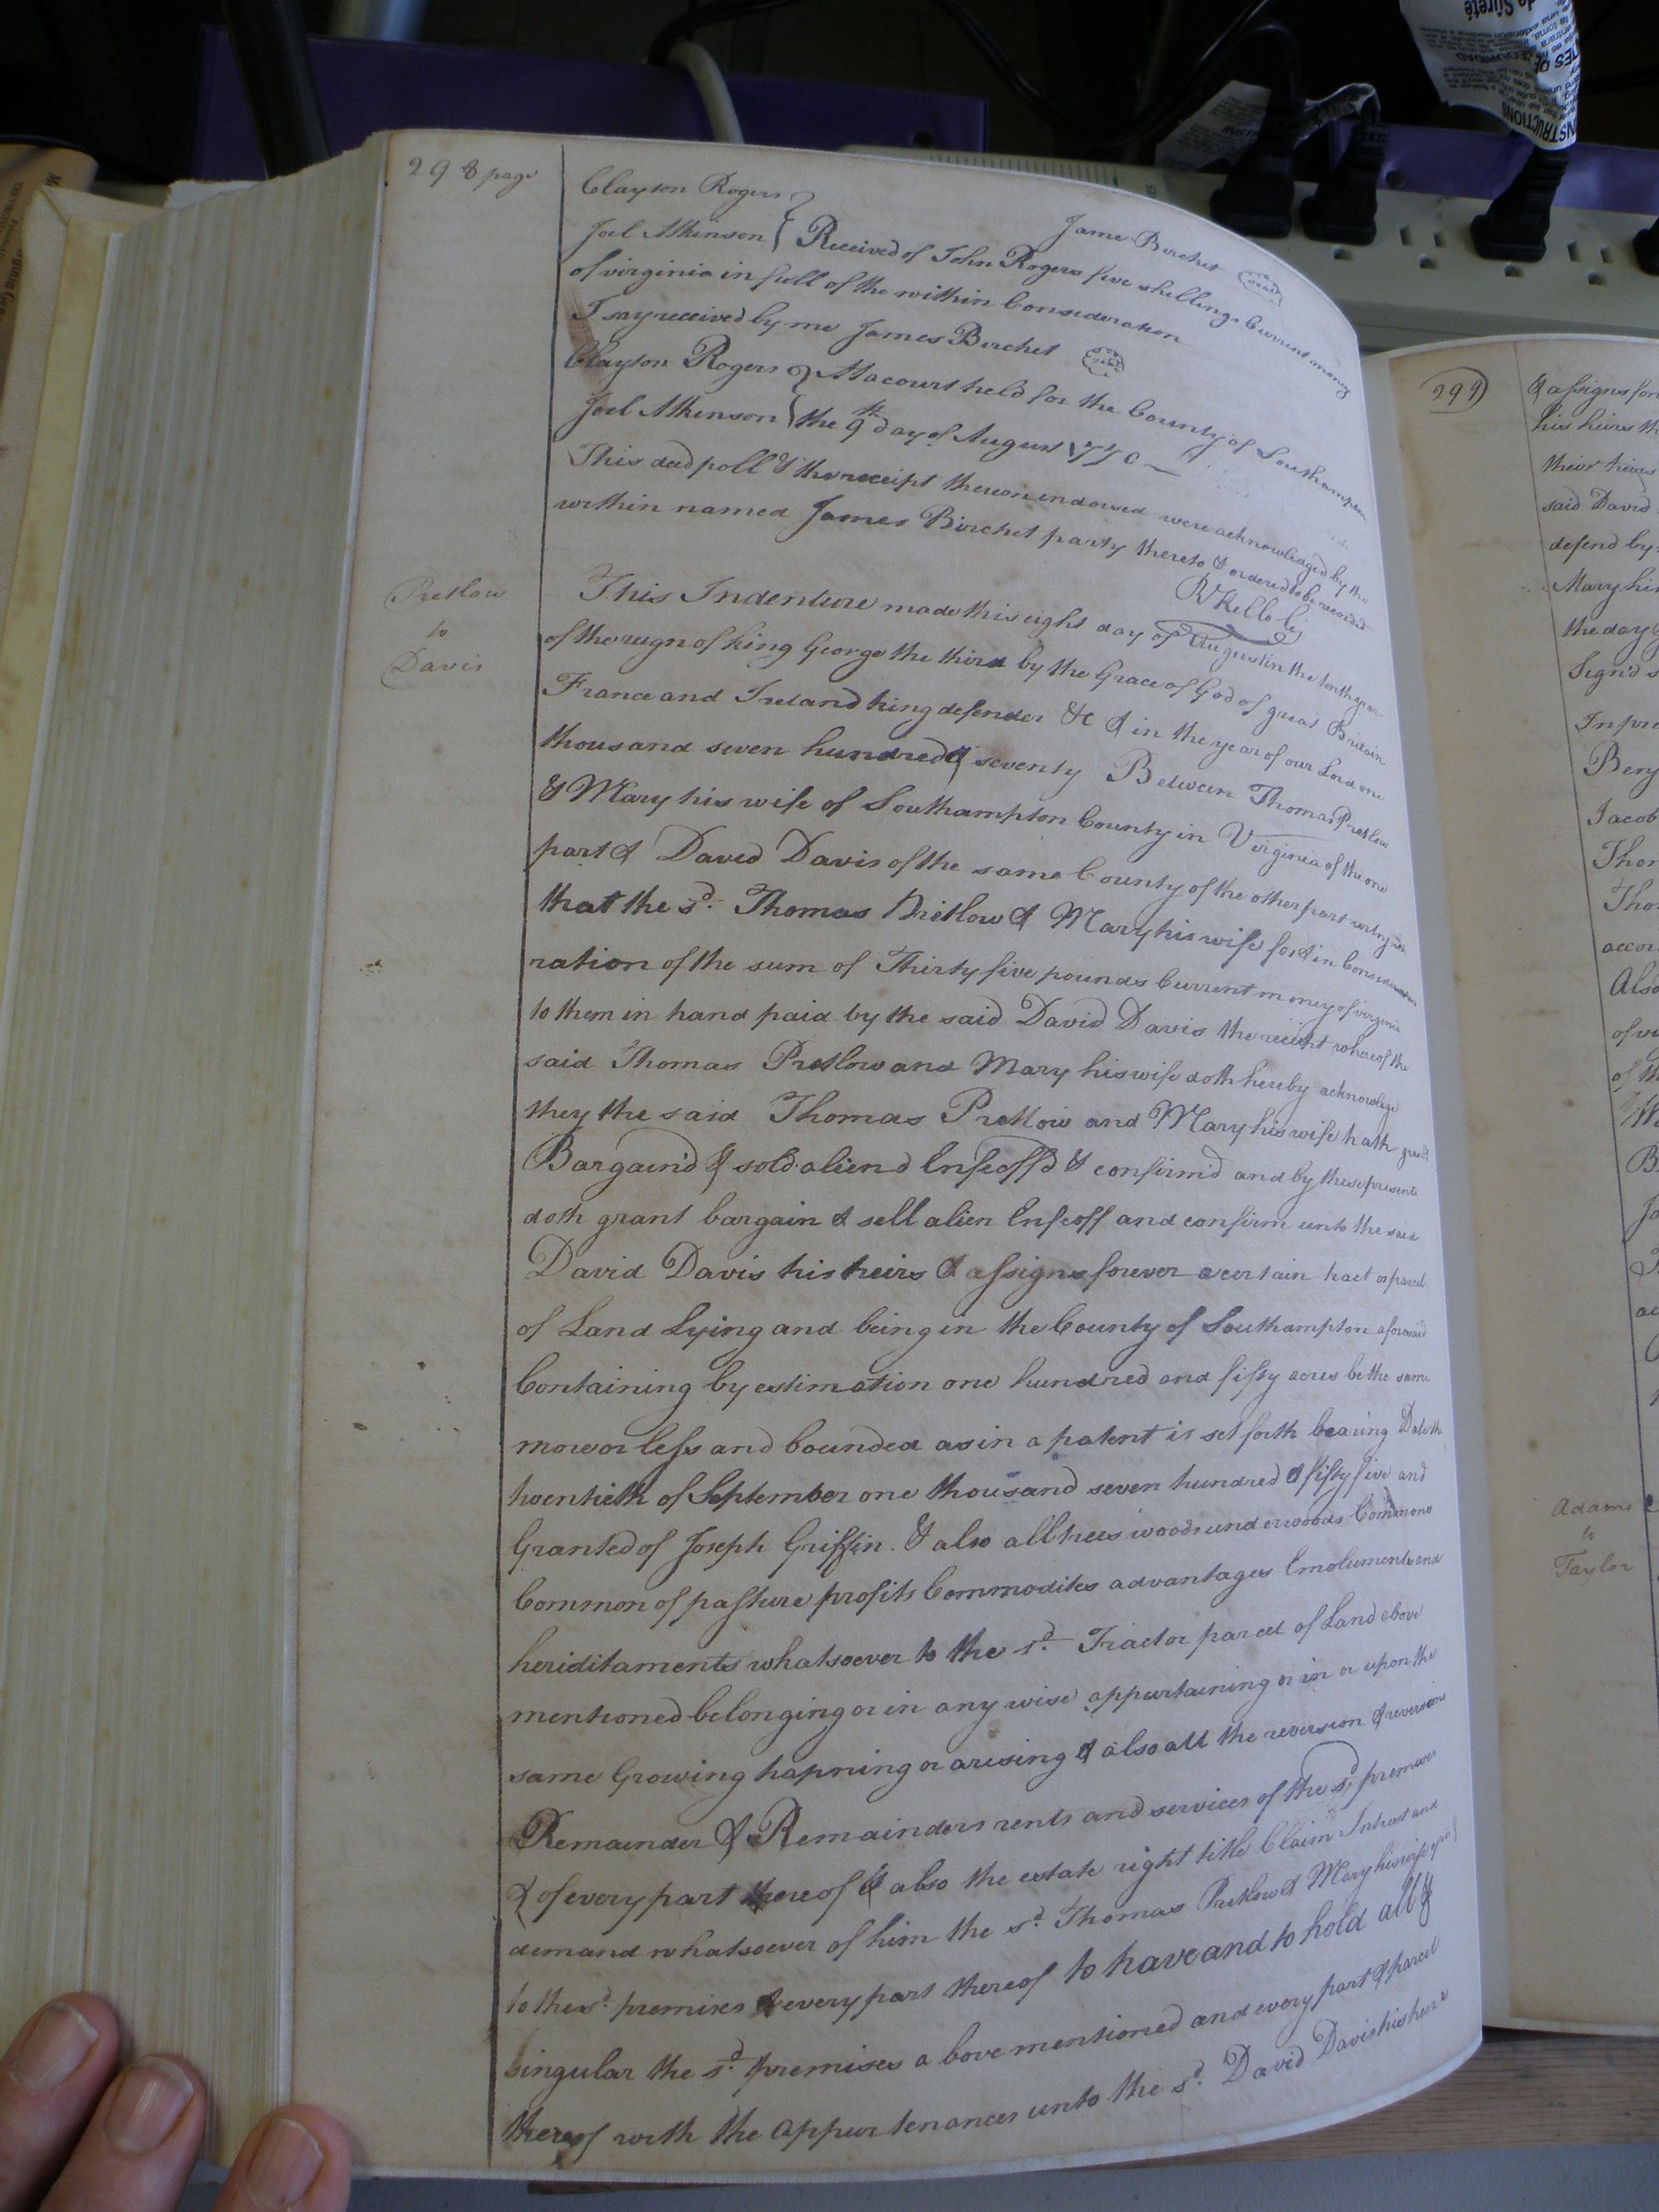 298 page
Clayton Rogers
James Birchet seal
Joel Atkinson Received of John Rogers five shillings Current money
of virginia in full of the within Consideration
I say received by me James Birchet seal
Clayton Rogers At a court held for the County of Southampton
Joel Atkinson the 9th day of August 1770
This deed poll & the receipt thereon endorsed were acknowledged by the
within named James Birchet party thereto & ordered to be recorded
Pretlow
to
Davis
This Indenture made this eight day of August in the tenth year
of the reign of King George the third by the Grace of God of great Britain
France and Ireland king defender &c & in the year of our Lord one
thousand seven hundred & seventy Between Thomas Pretlow
& Mary his wife of Southampton County in Virginia of the one
part & David Davis of the same County of the other part
that the sd. Thomas Pretlow & Mary his wife for & in Conside
ration of the sum of Thirty five pounds Current money of virginia
to them in hand paid by the said David Davis the reciept whereof the
said Thomas Pretlow and Mary his wife doth hereby acknowlege
they the said Thomas Pretlow and Mary his wife hath
Bargain'd & sold aliend Enfeoff'd & confirm'd and by these presents
doth grant bargain & sell alien Enfeoff and confirm unto the said
David Davis his heirs & assigns forever a certain tract or parcel
of Land Lying and being in the County of Southampton aforesaid
Containing by estimation one hundred and fifty acres be the same
more or less and bounded as in a patent is set forth bearing Date the
twentieth of September one thousand seven hundred & fifty five and
Granted of Joseph Griffin. & also all trees woods underwoods Commons
Common of pasture profits Commodites advantages Emoluments and
heriditaments whatsoever to the sd. Tract or parcel of Land above
mentioned belonging or in any wise appurtaining or in or upon the
same Growing hapning or arising & also all the reversion & reversions
Remainder & Remainders rents and services of the sd. premises
& of every part thereof & also the estate right title Claim Intrest and
demand whatsoever of him the sd. Thomas Pretlow & Mary his wife of in
to the sd. premises & every part thereof to have and to hold all &
singular the sd. premises above mentioned and every part & parcel
thereof with the appurtenances unto the sd. David Davis his heirs
299
& assigns for
his heirs th
their heirs
said David
defend by
Mary his
the day
Sign'd s
In pre
Benj
Jacob
Thom
Tho
accor
Also
of vi
of th
Adams
to
Taylor